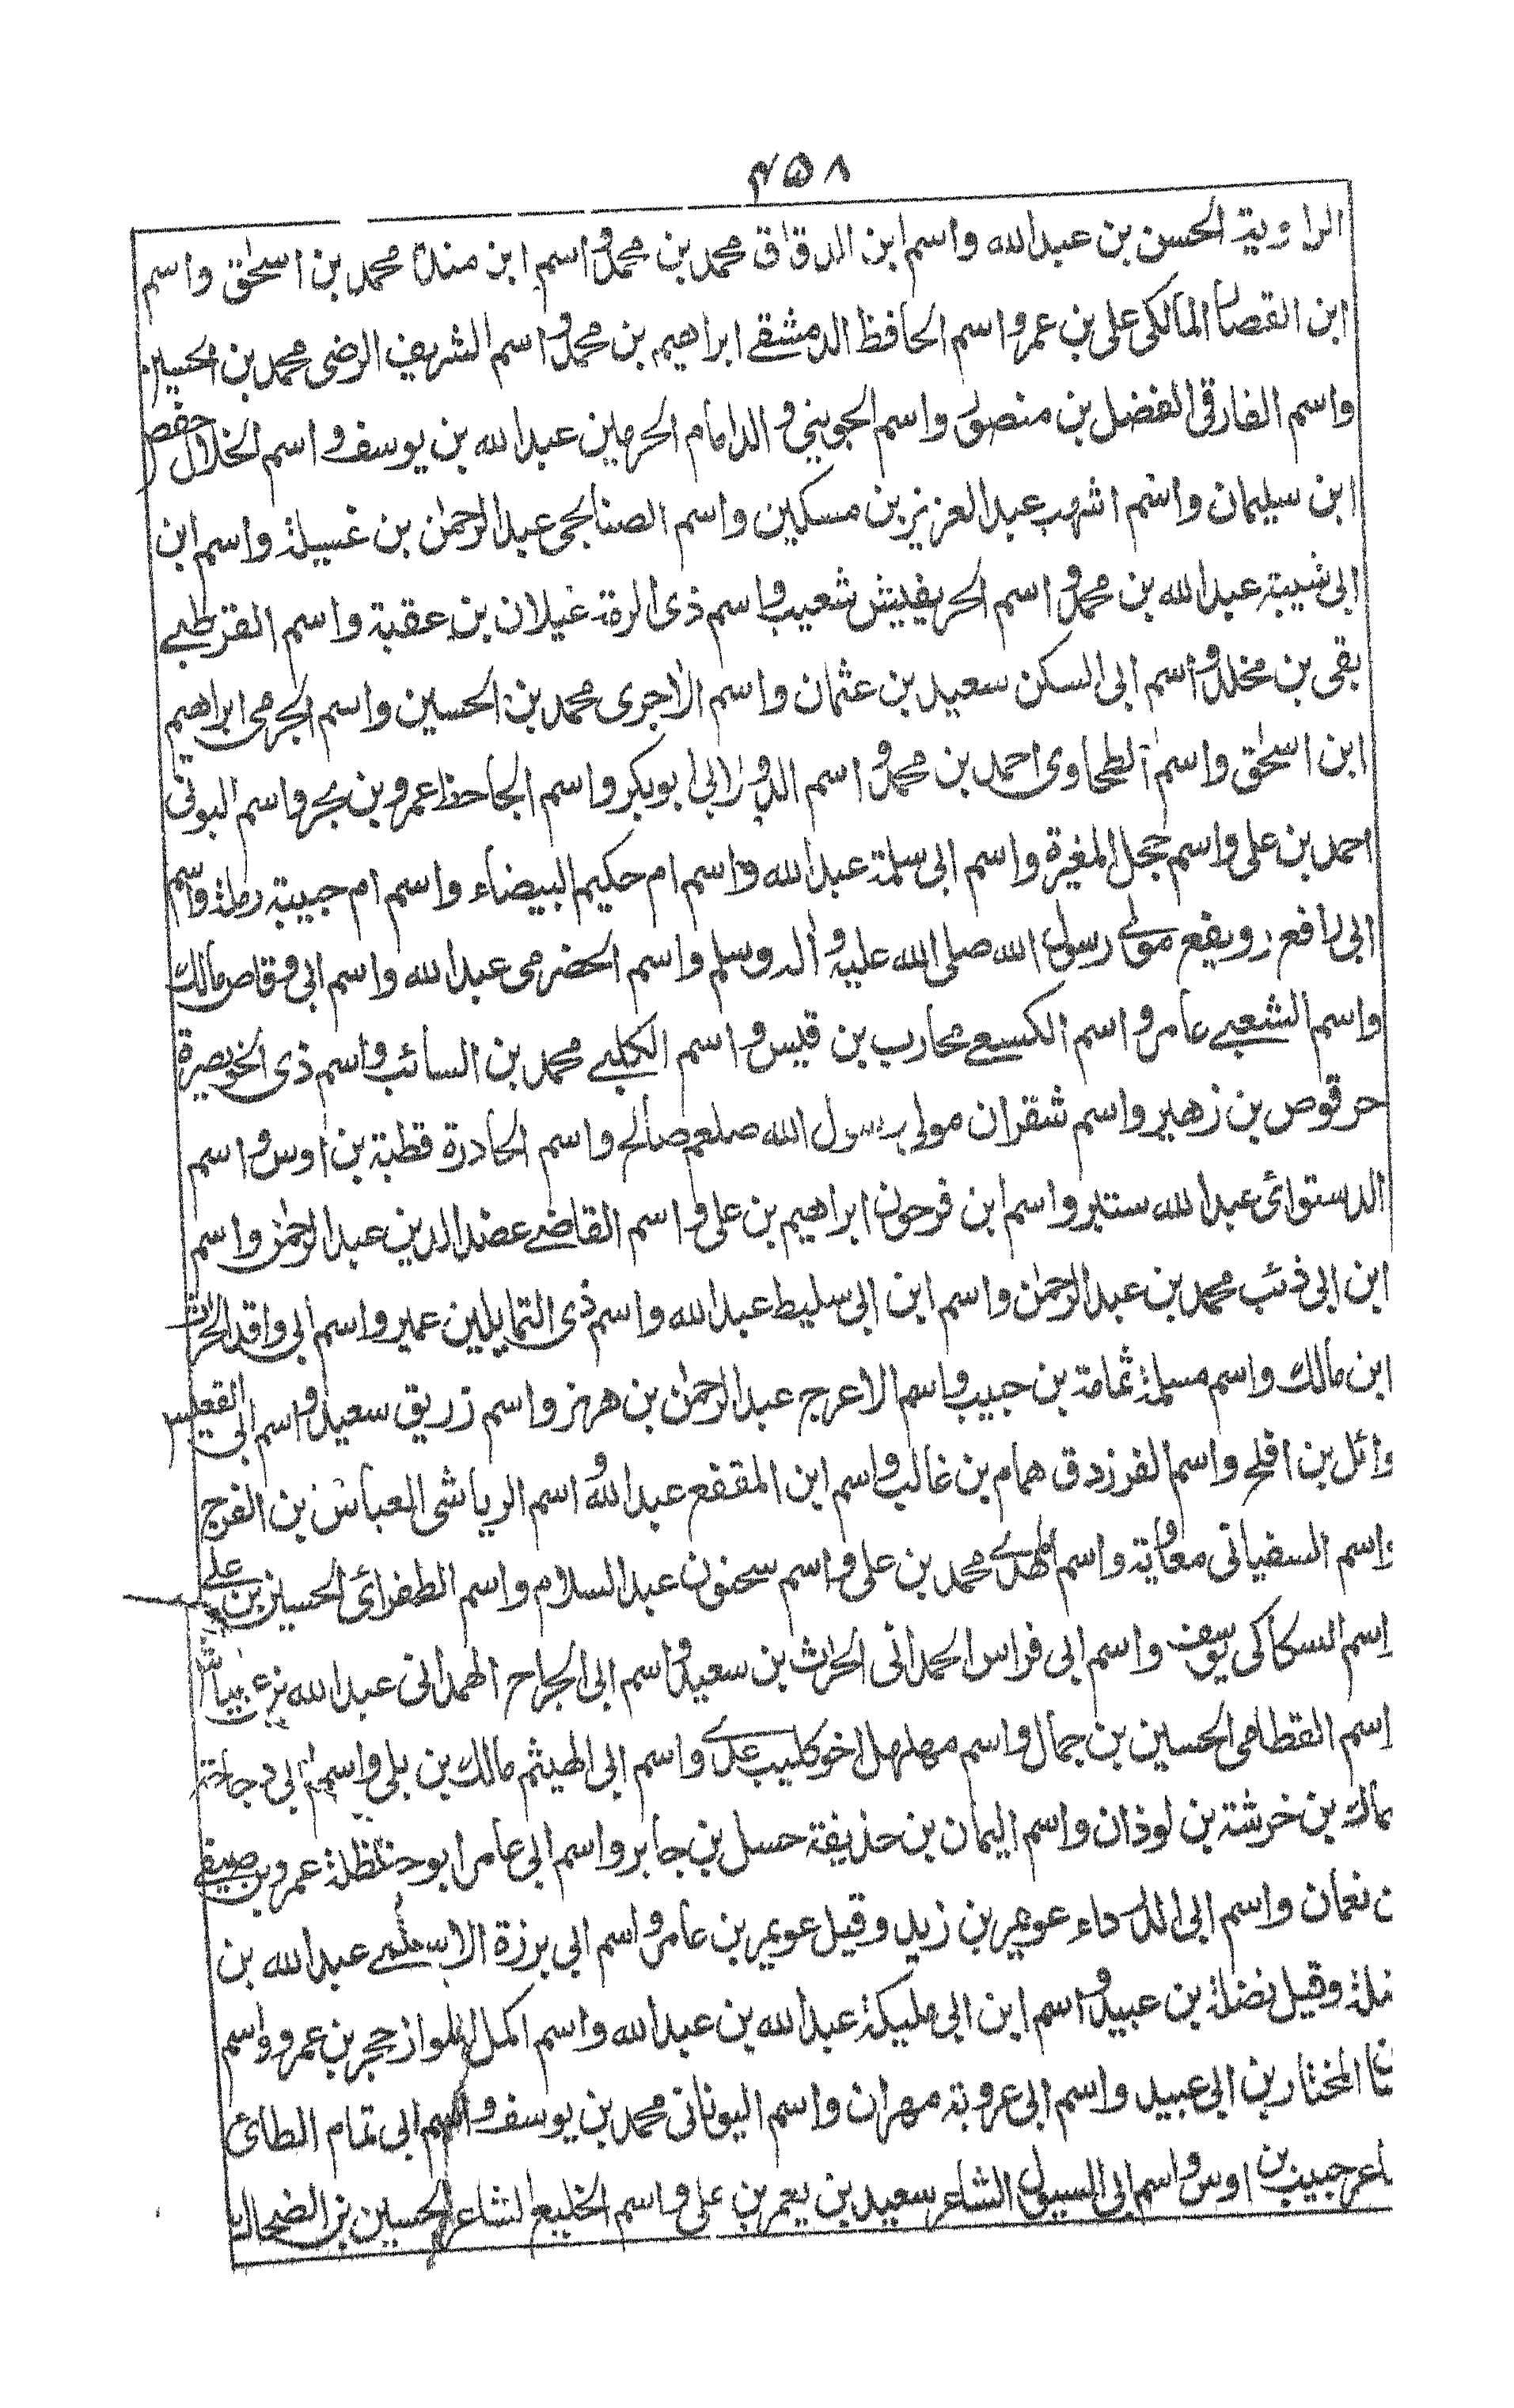 ۴۵۸
الراوية الحسن بن عبدالله واسم ابن الدقاق محمد بن محمد واسم ابن مندة محمد بن اسحق واسم
ابن القصار المالكى على بن عمر واسم الحافظ الدمشقى ابراهيم بن محمد واسم الشريف الرضى محمد بن الحسين
واسم الفارقى الفضل بن منصور واسم الجوينى والد امام الحرمين عبدالله بن يوسف واسم الخلال حفص
ابن سليمان واسم اشهب عبدالعزيز بن مسكين واسم الصنابحى عبدالرحمن بن غسيلة واسم ابن
ابى شيبة عبدالله بن محمد واسم الحريفيش شعيب واسم ذى الرمة غيلان بن عقبة واسم القرطبى
بقى بن مخلد واسم ابى السكن سعيد بن عثمان واسم الآجرى محمد بن الحسين واسم الجرمى ابراهيم
ابن اسحق واسم الطحاوى احمد بن محمد واسم الدورابى ابو بكر واسم الجاحظ عمرو بن بحر واسم البونى
احمد بن على واسم حجل المغيرة واسم ابى سلمة عبدالله واسم ام حكيم البيضاء واسم ام حبيبة رملة واسم
ابى رافع رويفع مولى رسول الله صلى الله عليه وآله وسلم واسم الحضرمى عبدالله واسم ابى وقاص مالك
واسم الشعبى عامر واسم الكسعى محارب بن قيس واسم الكلبى محمد بن السائب واسم ذى الخويصرة
حرقوص بن زهير واسم شقران مولى رسول الله صلعم صالح واسم الحادرة قطبة بن اوس واسم
الدستوائى عبدالله سنبر واسم ابن فرحون ابراهيم بن على واسم القاضى عضدالدين عبدالرحمن واسم
ابن ابى ذئب محمد بن عبدالرحمن واسم ابن ابى سليط عبدالله واسم ذى الثمايلين عمير واسم ابى واقد الحرث
ابن مالك واسم مسيلمة ثمامة بن حبيب واسم الاعرج عبدالرحمن بن هرمز واسم زريق سعيد واسم ابى القعيس
وائل بن افلح واسم الفرزدق همام بن غالب واسم ابن المقفع عبدالله واسم الرياشى العباس بن الفرج
واسم السفيانى معاوية واسم المهدى محمد بن على واسم سحنون عبدالسلام واسم الطغرائى الحسين بن على
واسم السكاكى يوسف واسم ابى فراس الحمدانى الحرث بن سعيد واسم ابى الجراح الهمدانى عبدالله بن عياش
اسم القطامى الحسين بن جمال واسم مهلهل اخو كليب عدى واسم ابى الهيثم مالك بن بلى واسم ابى دجانة
ماك بن خرشة بن لوذان واسم اليمان بن حذيفة حسل بن جابر واسم ابى عامر ابو حنظلة عمرو بن صيفى
ن نعمان واسم ابى الدرداء عويمر بن زيد وقيل عويمر بن عامر واسم ابى برزة الاسلمى عبدالله بن
ضلة وقيل نضلة بن عبيد واسم ابن ابى مليكة عبدالله بن عبدالله واسم اكمل حجر بن عمرو واسم
المختار بن ابى عبيد واسم ابى عروبة مهران واسم اليونانى محمد بن يوسف واسم ابى تمام الطائى
اعر حبيب بن اوس واسم ابى السيول الشاعر سعيد بن يعمر بن على واسم الخليع الشاعر الحسين بن الضحاك